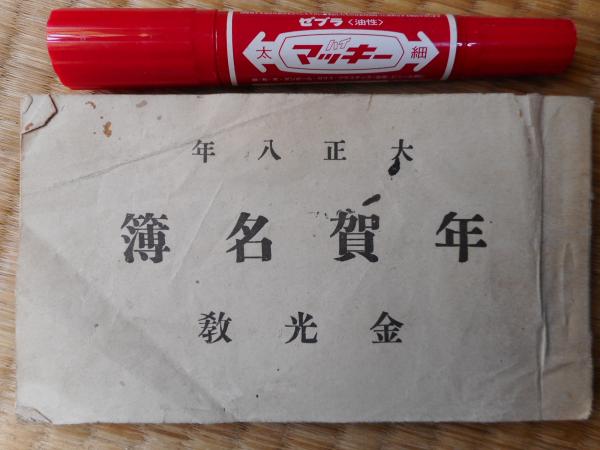 ゼブラ〈油性〉
太 ハイ マッキー 細
大正八年
年賀名簿
金光教